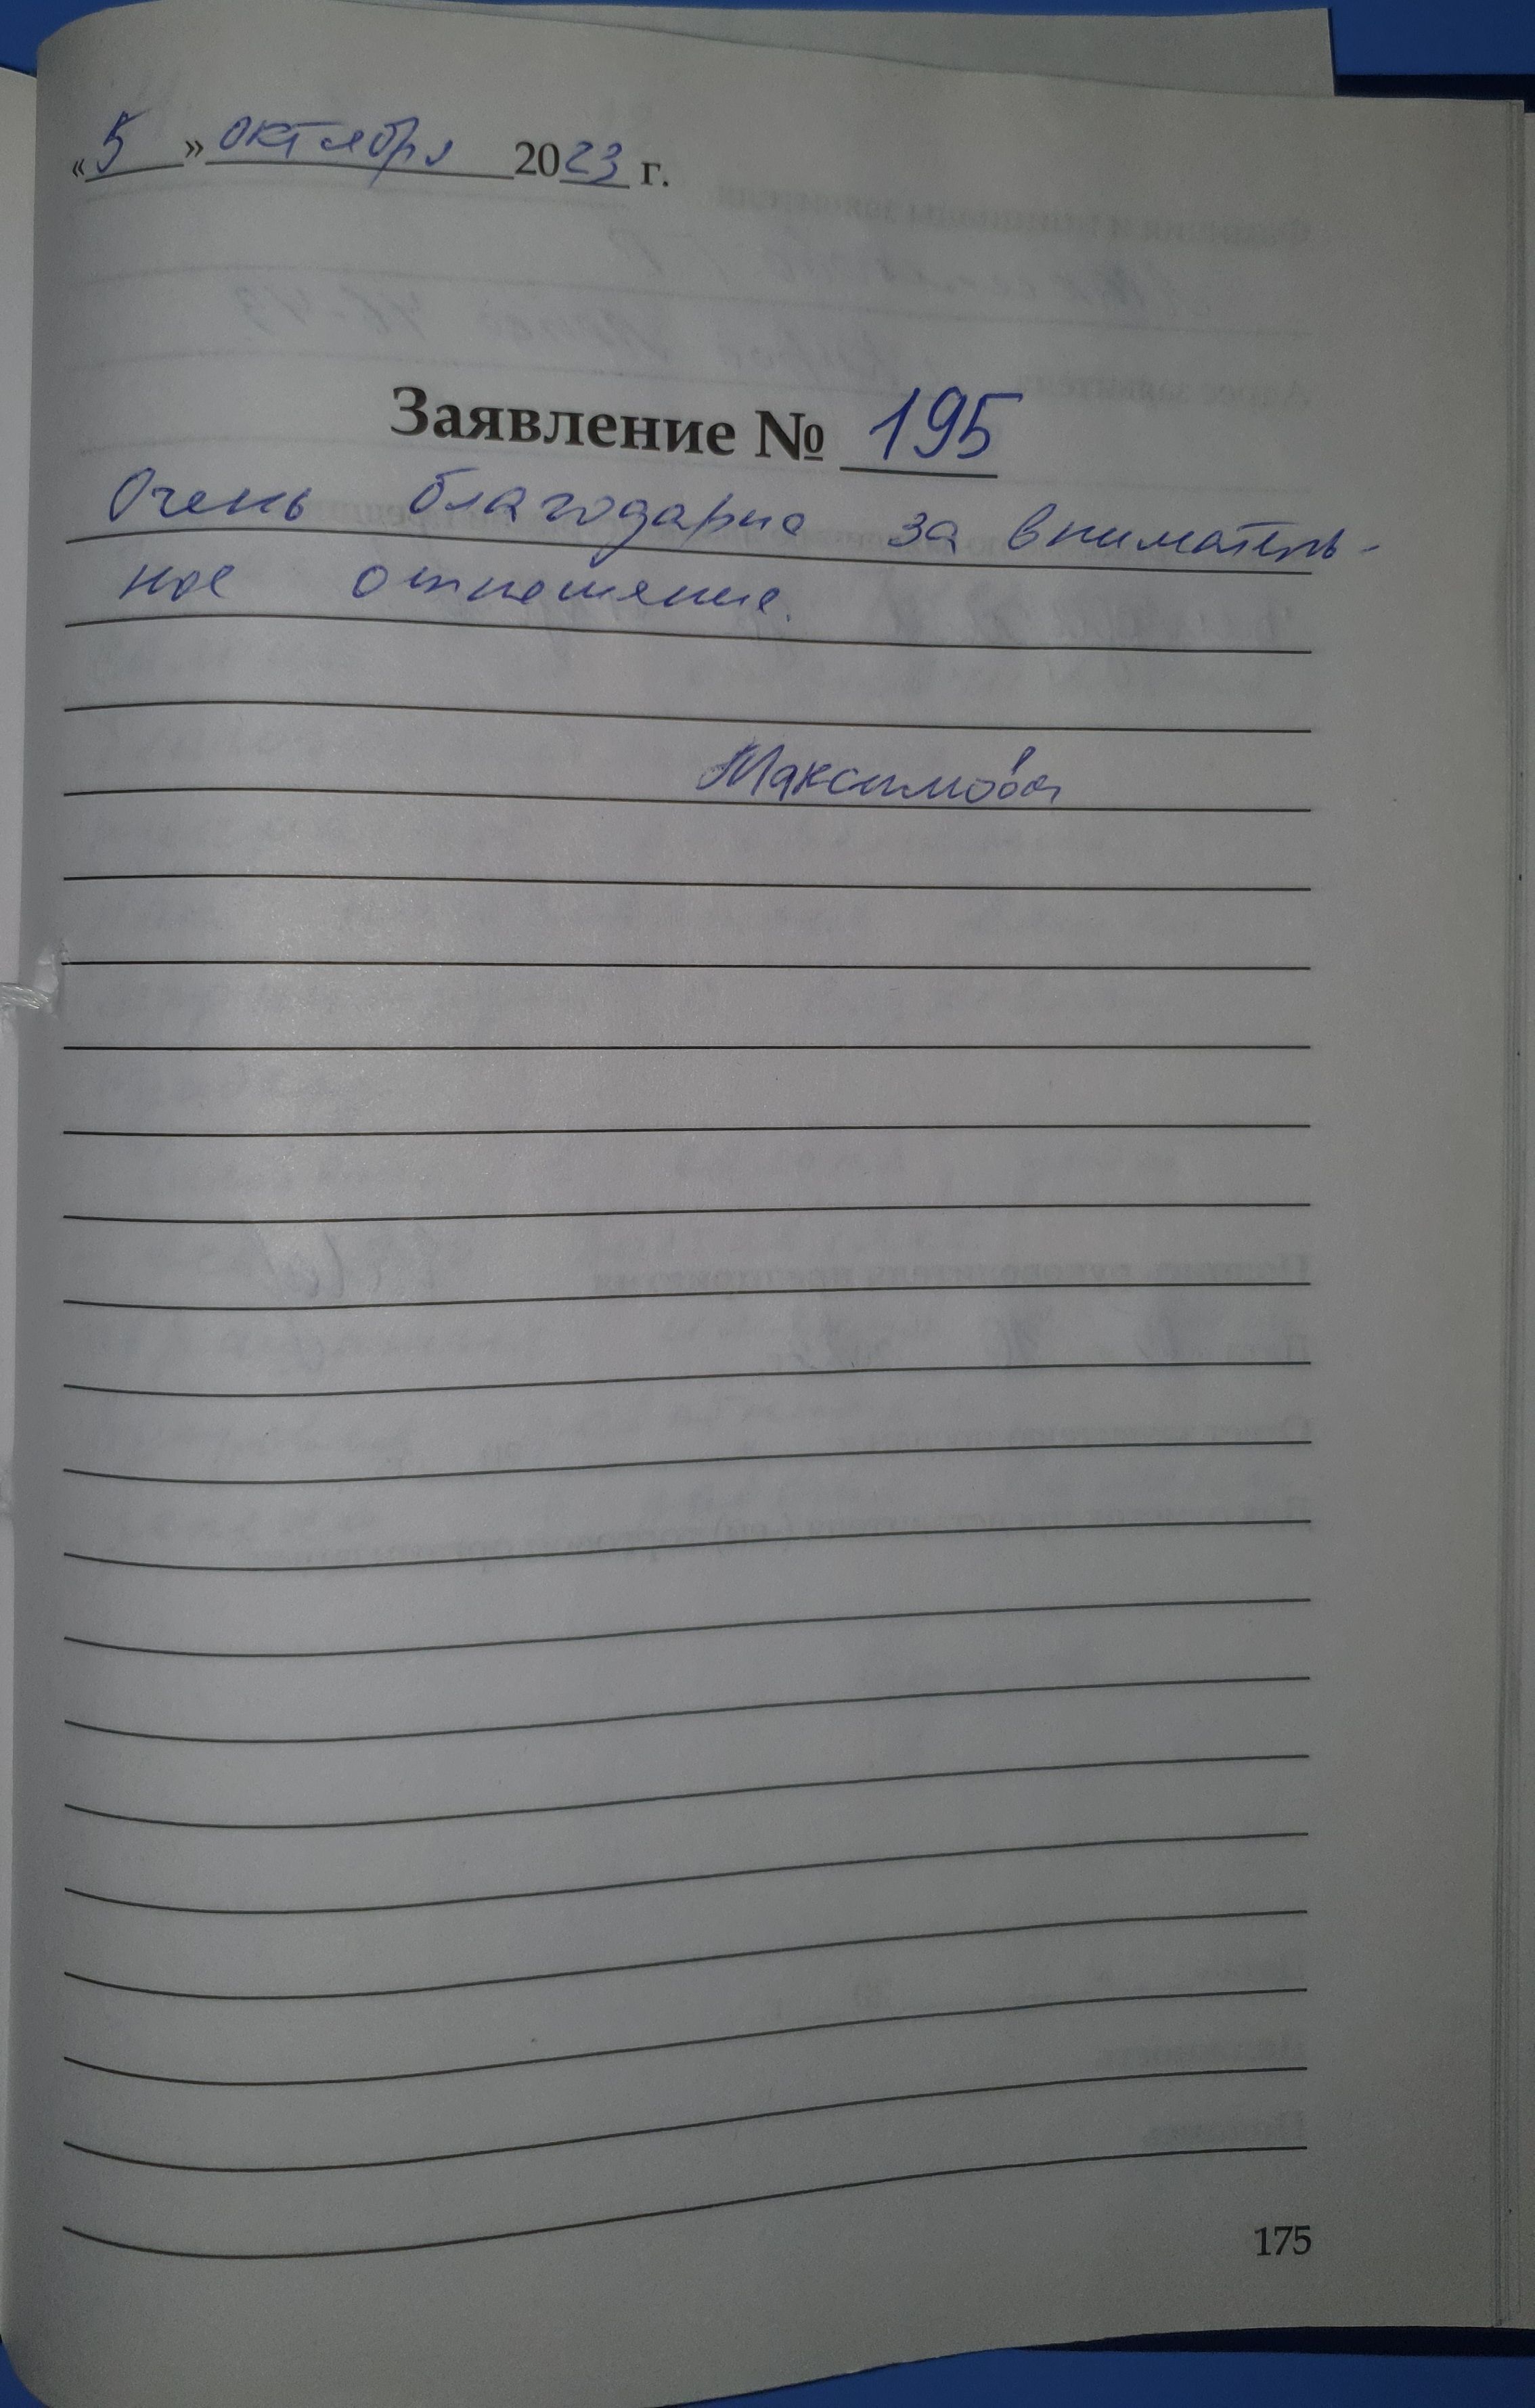 «5» октября 2023 г.
Заявление № 195
Очень благодарна за вниматель-
ное отношение.
Максимова
175